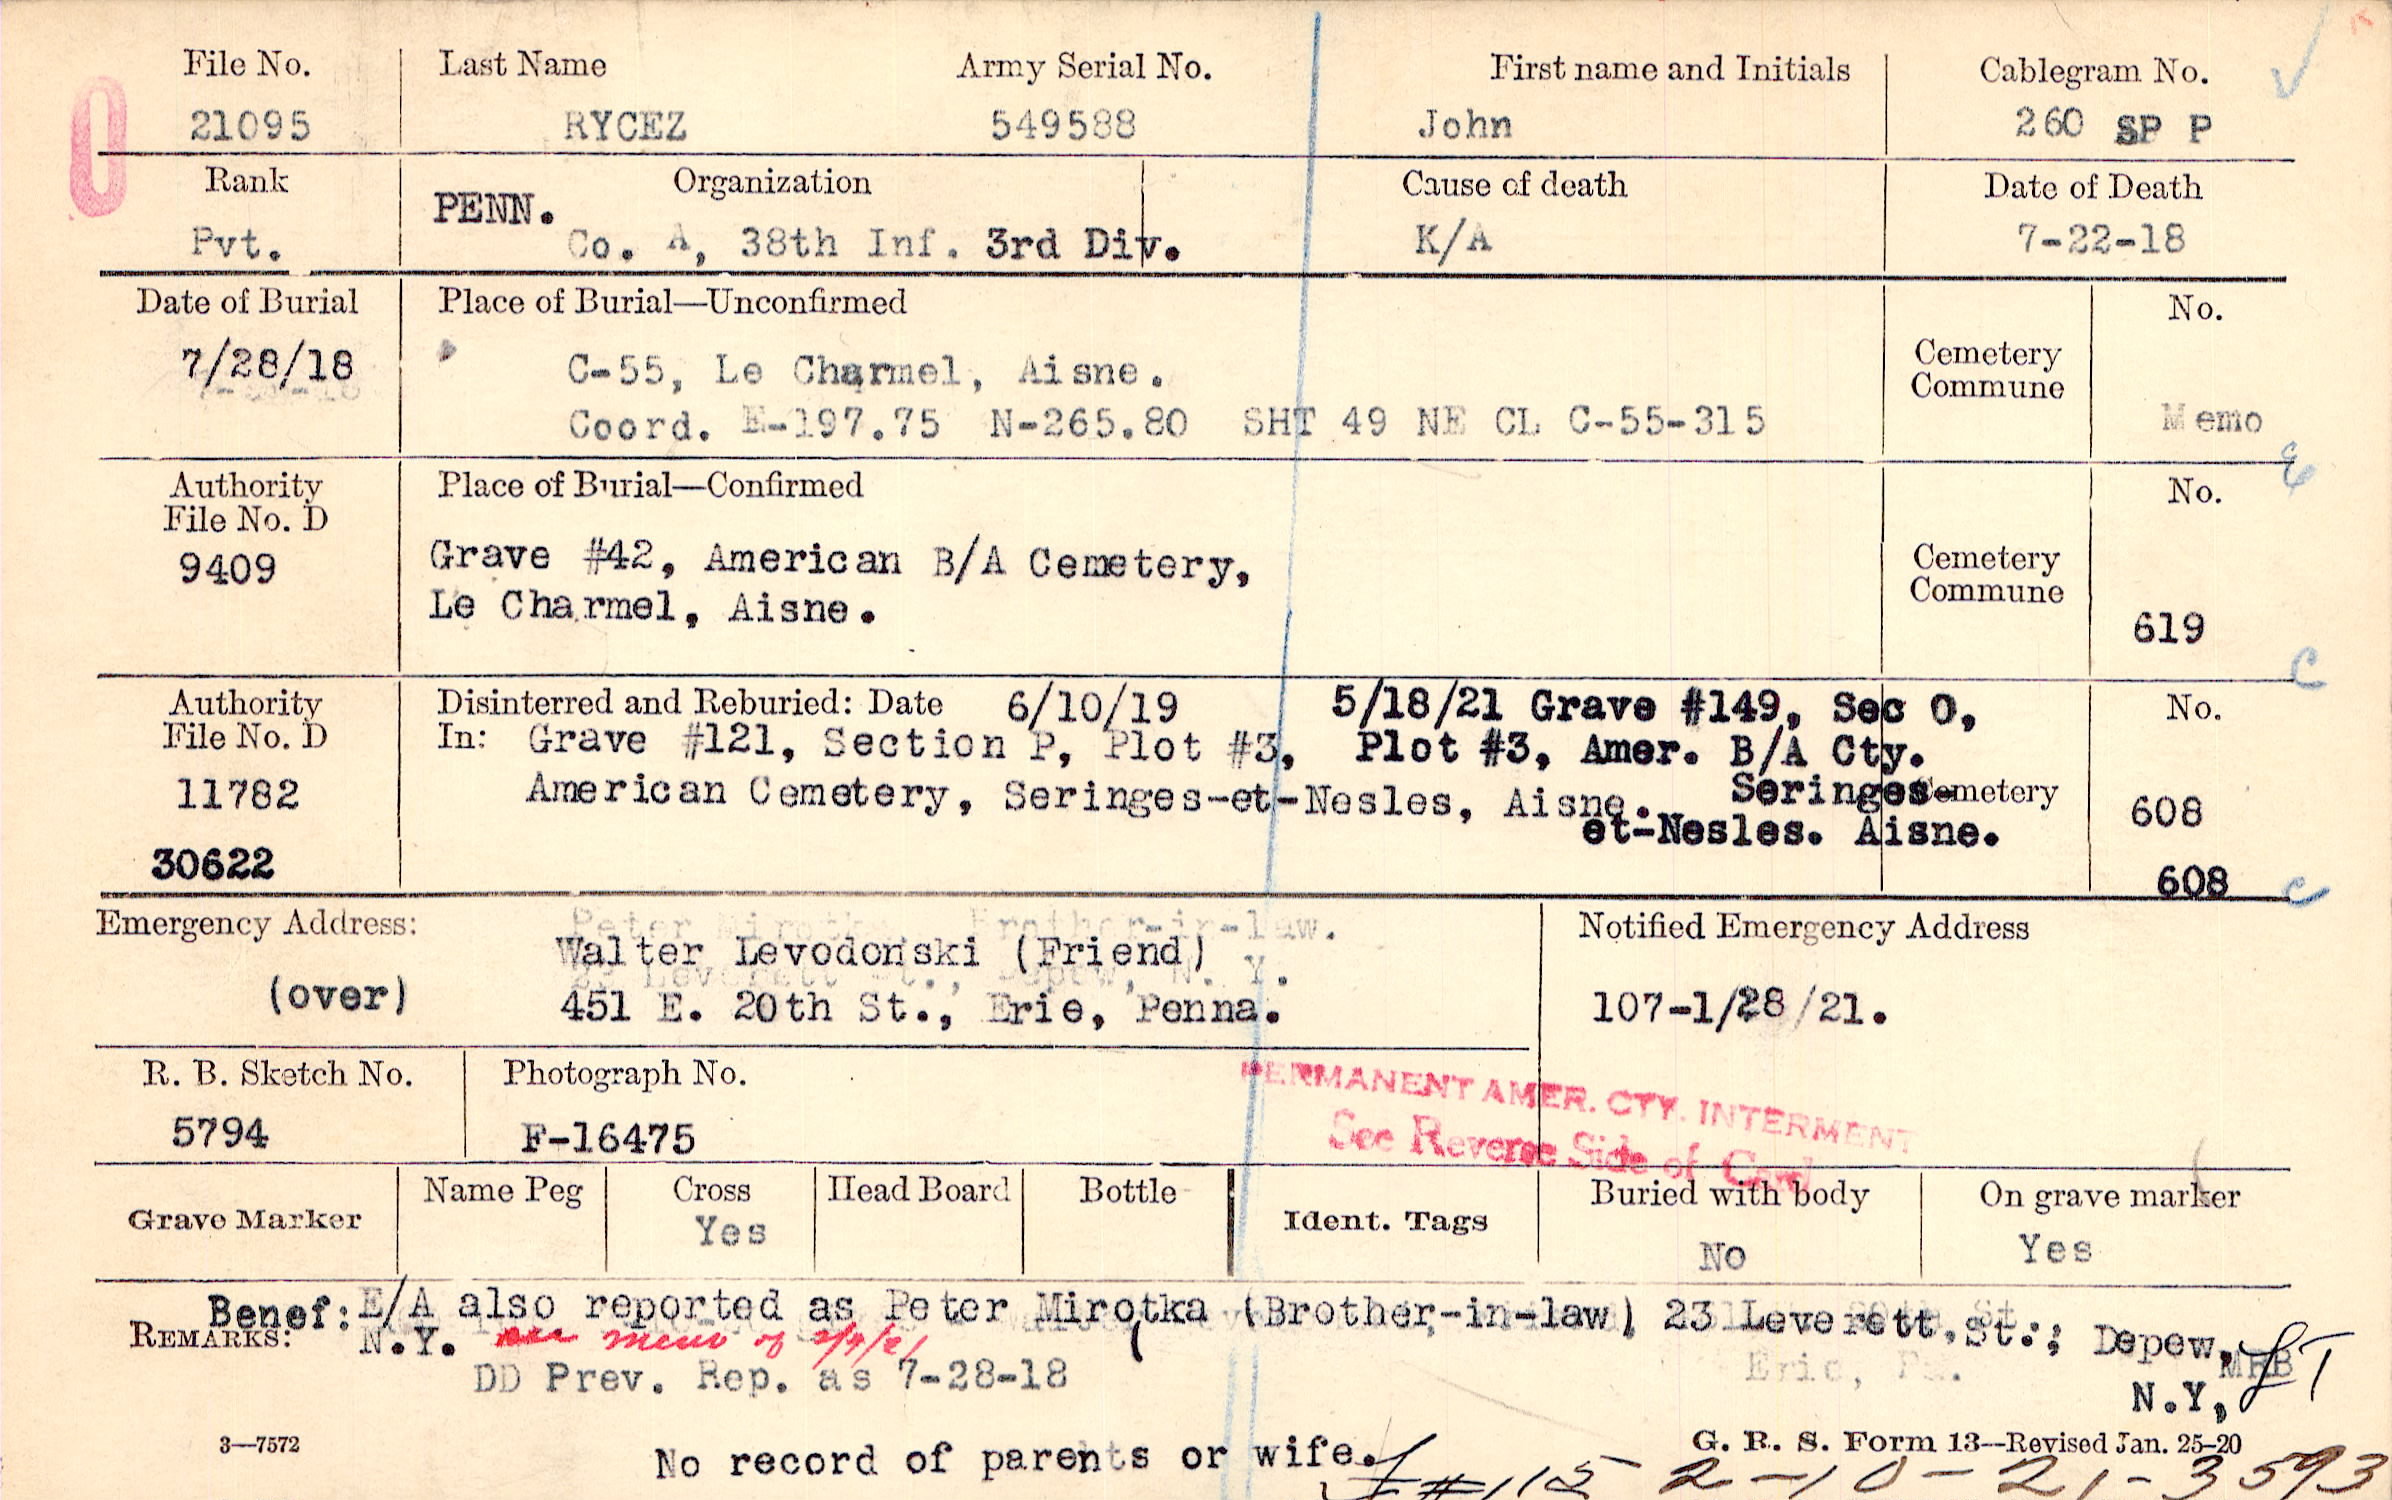 File No. Last Name Army Serial No. First name and Initials Cablegram No.
21095 RYCEZ 549588 John 260 SP P
Rank Organization Cause of death Date of Death
PENN.
Pvt. Co. A, 38th Inf. 3rd Div. K/A 7-22-18
Date of Burial Place of Burial—Unconfirmed No.
7/28/18 C-55, Le Charmel, Aisne. Cemetery
Commune
Coord. E-197.75 N-265.80 SHT 49 NE CL C-55-315 Memo
Authority Place of Burial—Confirmed No.
File No. D
9409 Grave #42, American B/A Cemetery, Cemetery
Le Charmel, Aisne. Commune
619
Authority Disinterred and Reburied: Date 6/10/19 5/18/21 Grave #149, Sec O, No.
File No. D In: Grave #121, Section P, Plot #3, Plot #3, Amer. B/A Cty.
11782 American Cemetery, Seringes-et-Nesles, Aisne. Seringes- Cemetery 608
et-Nesles. Aisne.
30622 608
Emergency Address: Peter Mirotka, Brother-in-law. Notified Emergency Address
Walter Levodonski (Friend)
23 Leverett St., Depew, N. Y.
(over) 451 E. 20th St., Erie, Penna. 107-1/28/21.
R. B. Sketch No. Photograph No.
5794 F-16475
PERMANENT AMER. CTY. INTERMENT
See Reverse Side of Card
Grave Marker Name Peg Cross Head Board Bottle Ident. Tags Buried with body On grave marker
Yes No Yes
Benef: E/A also reported as Peter Mirotka (Brother-in-law) 23 Leverett St.; Depew,
REMARKS: N.Y. see memo of 2/9/21
DD Prev. Rep. as 7-28-18 Erie, Pa. MRB
N.Y,
3—7572 G. R. S. Form 13—Revised Jan. 25-20
No record of parents or wife. #115 2-10-21-3593